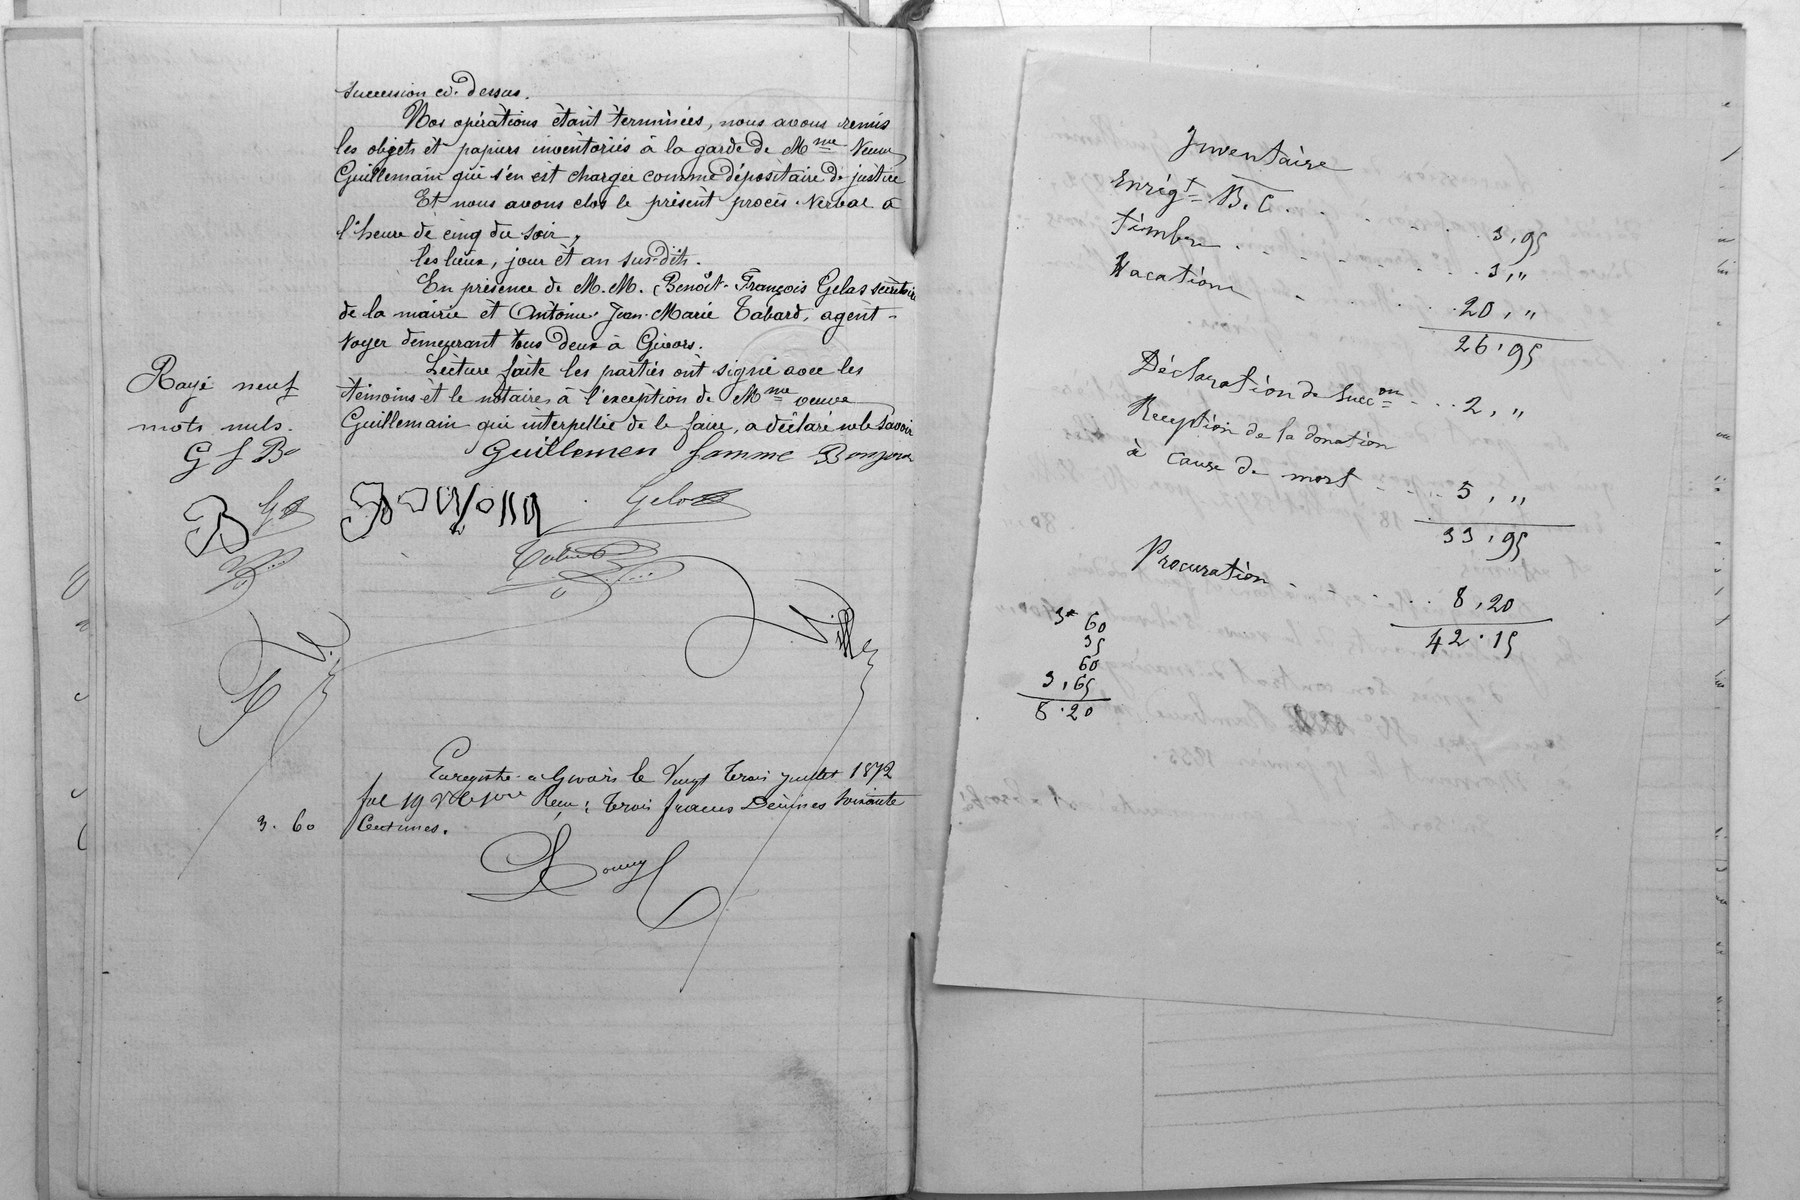 succession ci-dessus.
Nos opérations étant terminées, nous avons remis
les objets et papiers inventoriés à la garde de Mme Veuve
Guillemain qui s'en est chargée comme dépositaire de justice
Et nous avons clos le présent procès-Verbal à
l'heure de cinq du soir,
les lieux, jour et an susdits.
En présence de M.M. Benoît-François Gelas secrétaire
de la mairie et Antoine-Jean-Marie Tabard, agent-
voyer demeurant tous deux à Givors.
Lecture faite les parties ont signé avec les
témoins et le notaire, à l'exception de Mme veuve
Guillemain qui interpellée de le faire, a déclaré ne le savoir
Rayé neuf
mots nuls.
G f B
Guillemen famme Bonjour
B
Gelas
Tabard
Enregistré à Givors le Vingt trois juillet 1872
fol 19 Reçu : trois francs Décimes soixante
3. 60 Centimes.
Inventaire
Enregt B. C. . . . . . 3,95
Timbre . . . . . . . 3,"
Vacations . . . . 20,"
26.95
Déclaration de Succon . . . 2,"
Réception de la donation
à cause de mort . . . 5,"
33,95
Procuration . . . 8,20
42.15
3 60
35
60
3,65
8.20